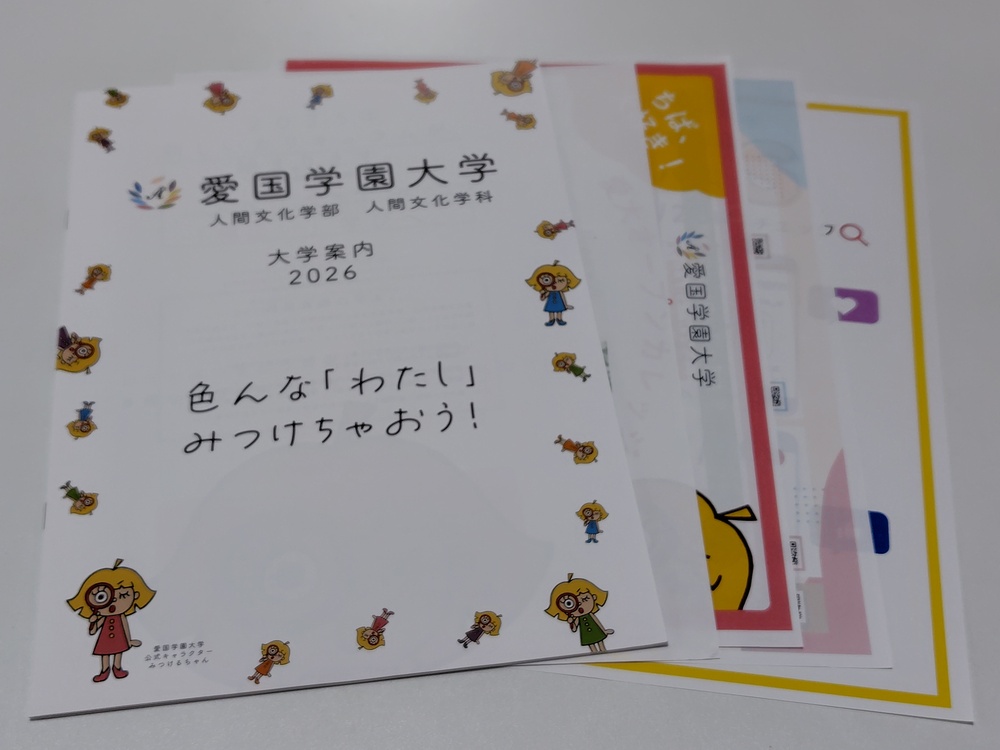 愛国学園大学
人間文化学部 人間文化学科
大学案内
2026
色んな「わたし」
みつけちゃおう!
愛国学園大学
公式キャラクター
みつけるちゃん
ちば、
愛国学園大学